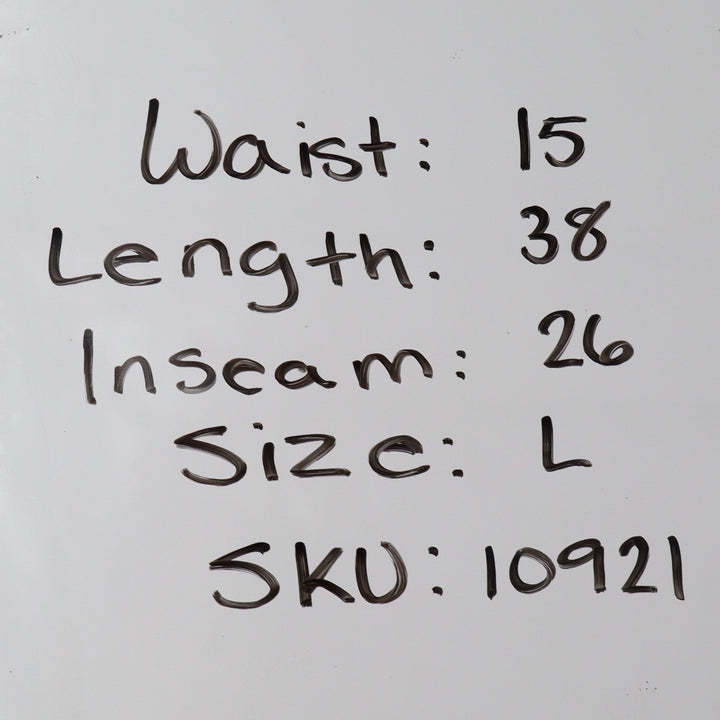 Waist: 15
Length: 38
Inseam: 26
Size: L
SKU: 10921